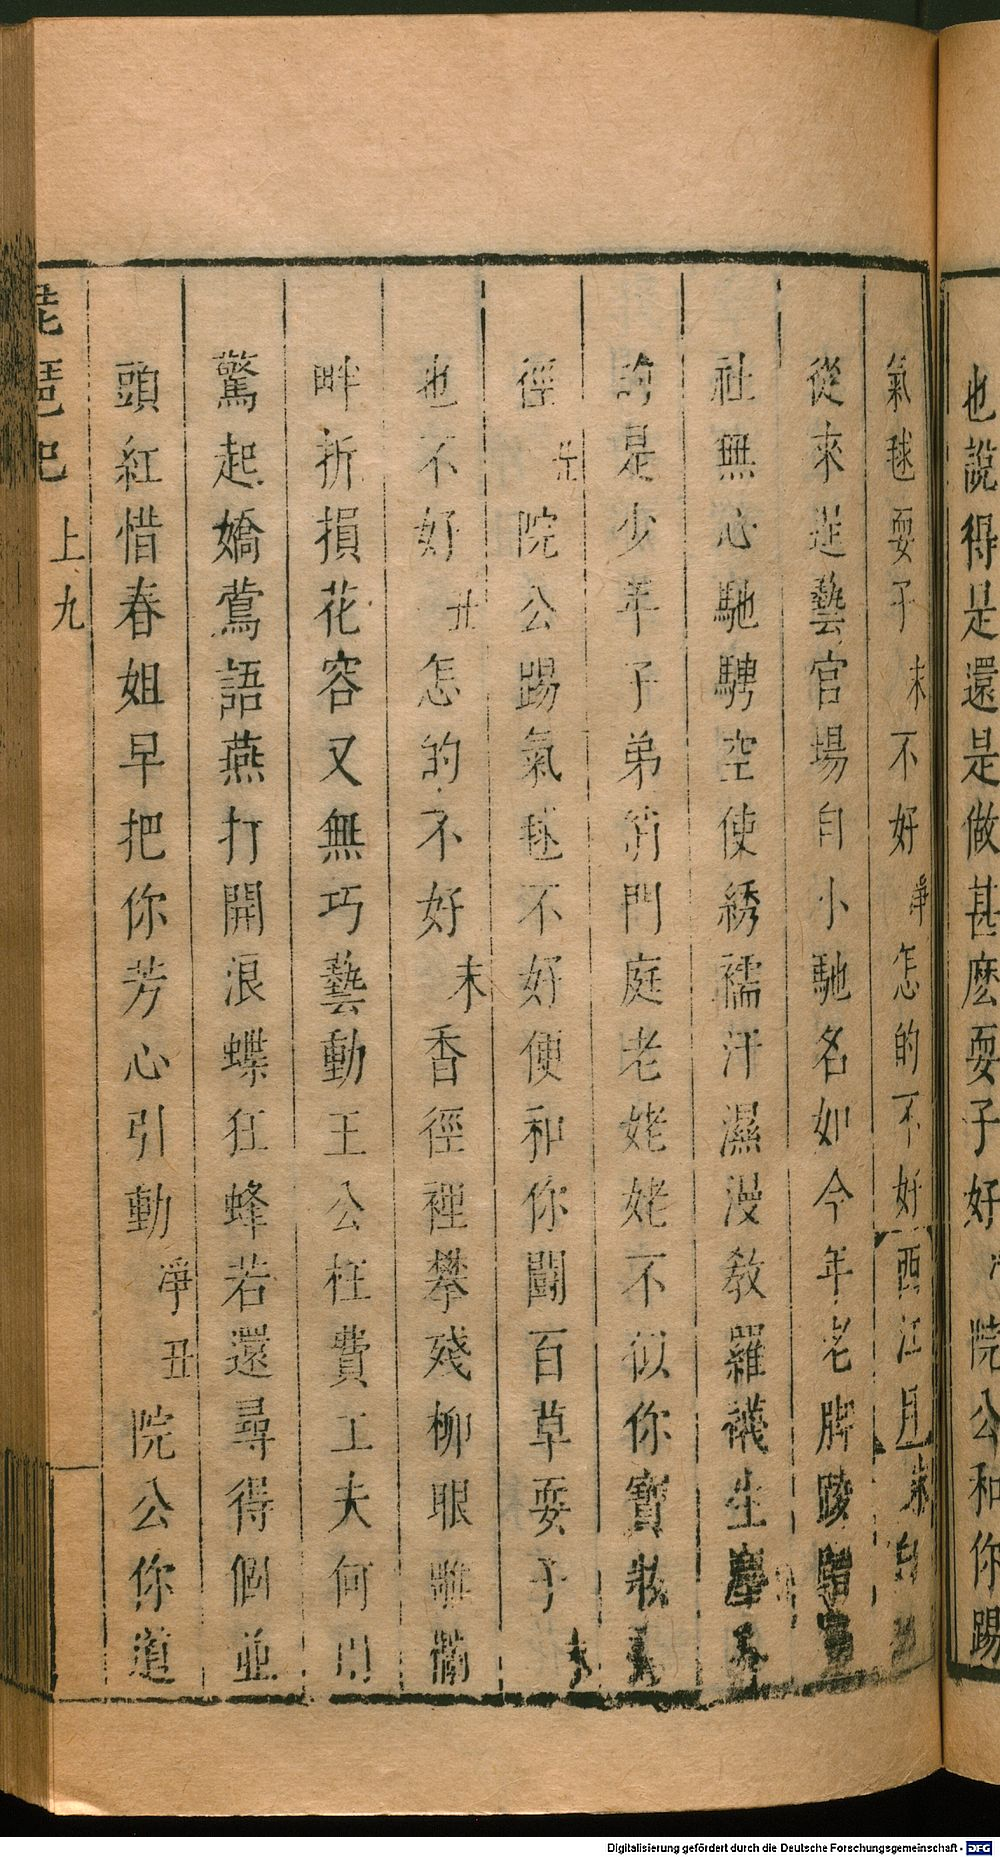 也說得是還是做甚麽耍子好 淨 院公和你踢
氣毬耍子 末 不好 淨 怎的不好 西江月 末
從來遊藝官場自小馳名如今年老脚
社無心馳騁空使綉襦汗濕漫教羅襪生
的是少年子弟消門庭老姥姥不似你寶
徑 丑 院公踢氣毬不好便和你鬬百草耍子
也不好 丑 怎的不好 末 香徑裡攀殘柳眼雕欄
畔折損花容又無巧藝動王公枉費工夫何用
驚起嬌鶯語燕打開浪蝶狂蜂若還尋得個並
頭紅惜春姐早把你芳心引動 淨 丑 院公你道
琵琶記 上 九
Digitalisierung gefördert durch die Deutsche Forschungsgemeinschaft - DFG